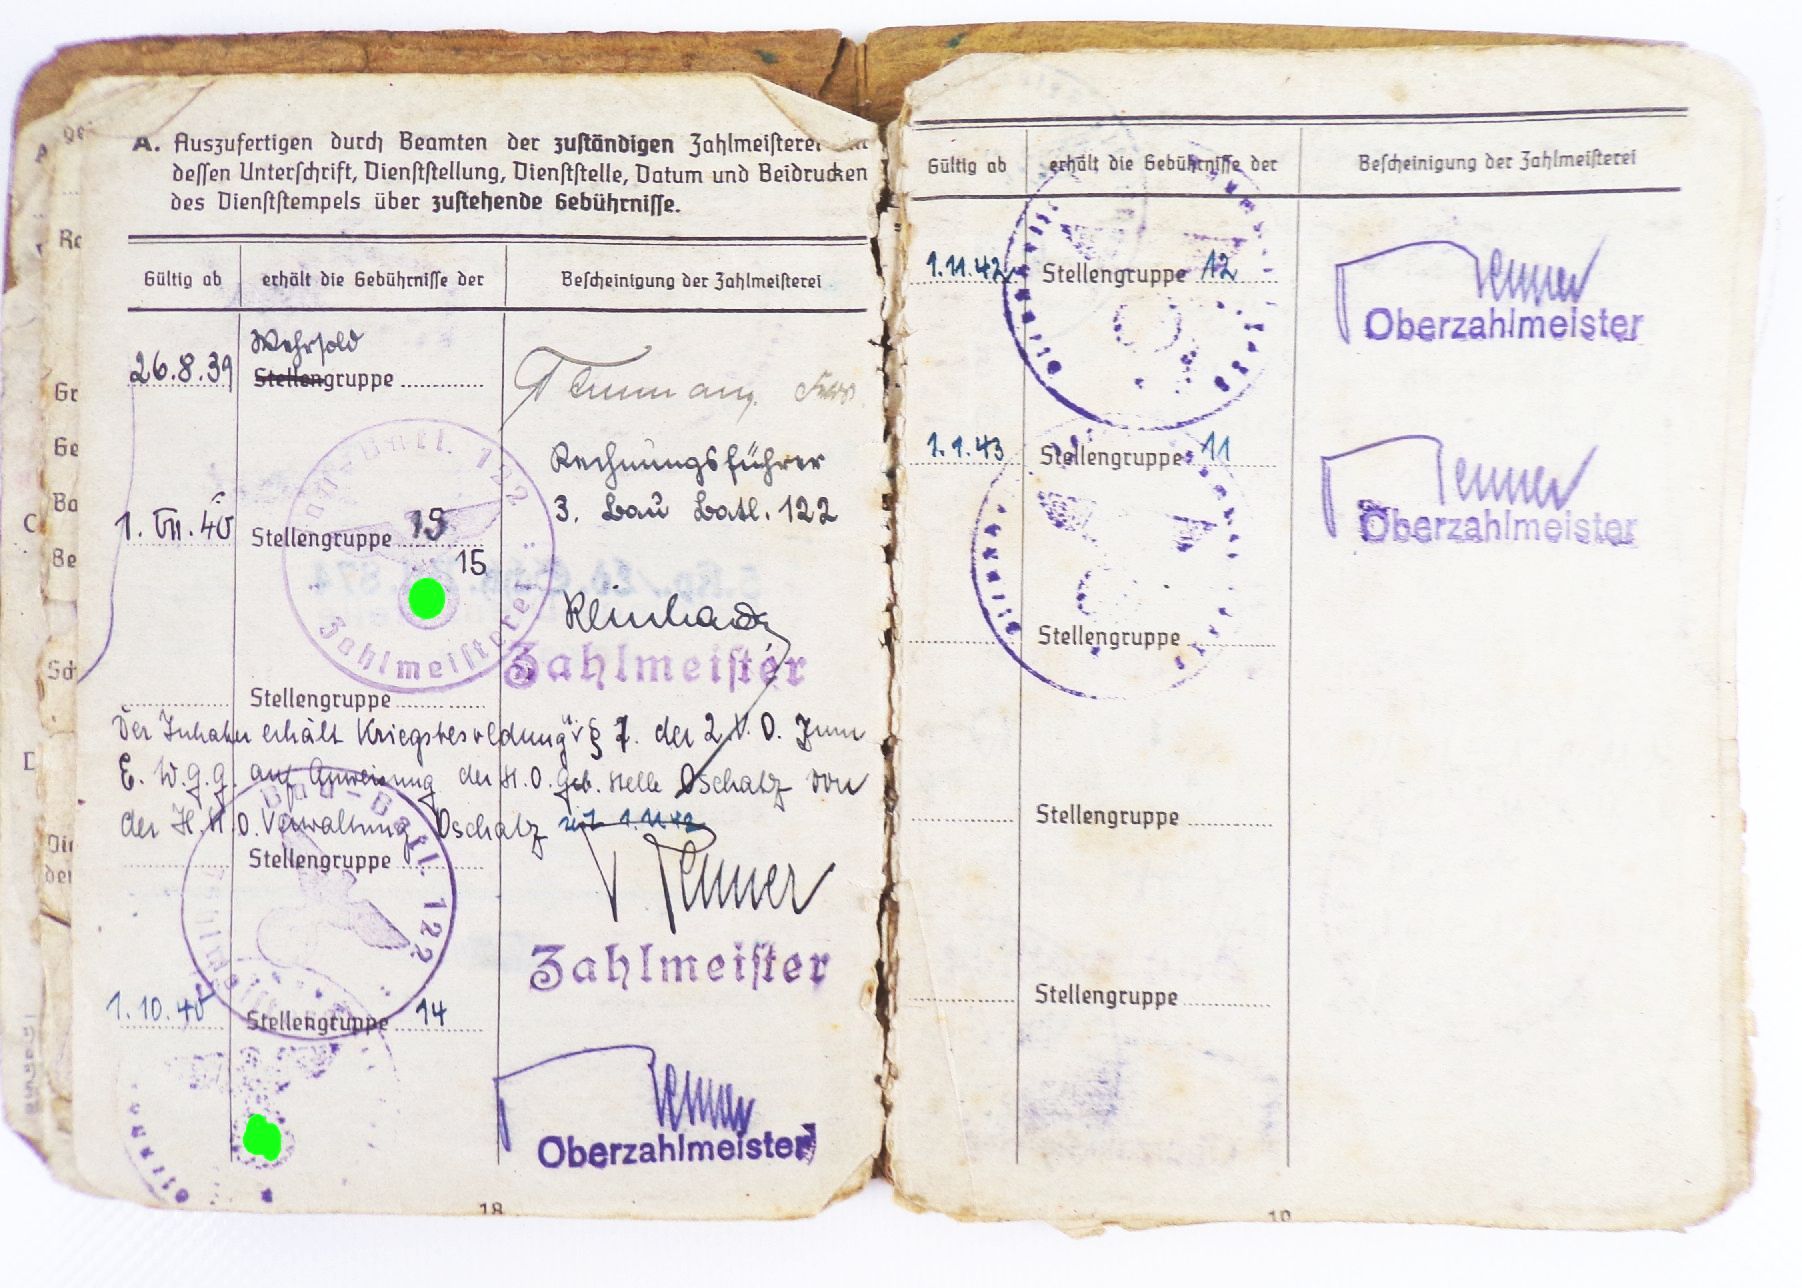 A. Auszufertigen durch Beamten der zuständigen Zahlmeisterei
dessen Unterschrift, Dienststellung, Dienststelle, Datum und Beidrucken
des Dienststempels über zustehende Gebührnisse.
Gültig ab erhält die Gebührnisse der Bescheinigung der Zahlmeisterei
Wehrsold
26.8.39 Stellengruppe
Rechnungsführer
3. Bau Batl. 122
1. VII. 40 Stellengruppe 15
15
Bau-Batl. 122
Zahlmeisterei
Zahlmeister
Stellengruppe
Der Inhaber erhält Kriegsbesoldung § 7. der 2. V. O. zum
E. W. G. G. auf Anweisung der H. O. Geb. Stelle Oschatz von
der H. St. O. Verwaltung Oschatz seit 1.11.42
Stellengruppe
Bau-Batl. 122
Zahlmeisterei
Renner
Zahlmeister
1.10.40 Stellengruppe 14
Renner
Oberzahlmeister
18
Gültig ab erhält die Gebührnisse der Bescheinigung der Zahlmeisterei
1.11.42 Stellengruppe 12
Renner
Oberzahlmeister
1.1.43 Stellengruppe 11
Renner
Oberzahlmeister
Stellengruppe
Stellengruppe
Stellengruppe
19